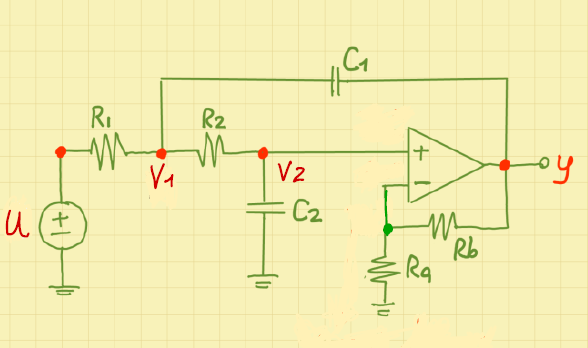 C1
R1
R2
V1
V2
+
-
y
U
+
-
C2
Rb
Ra